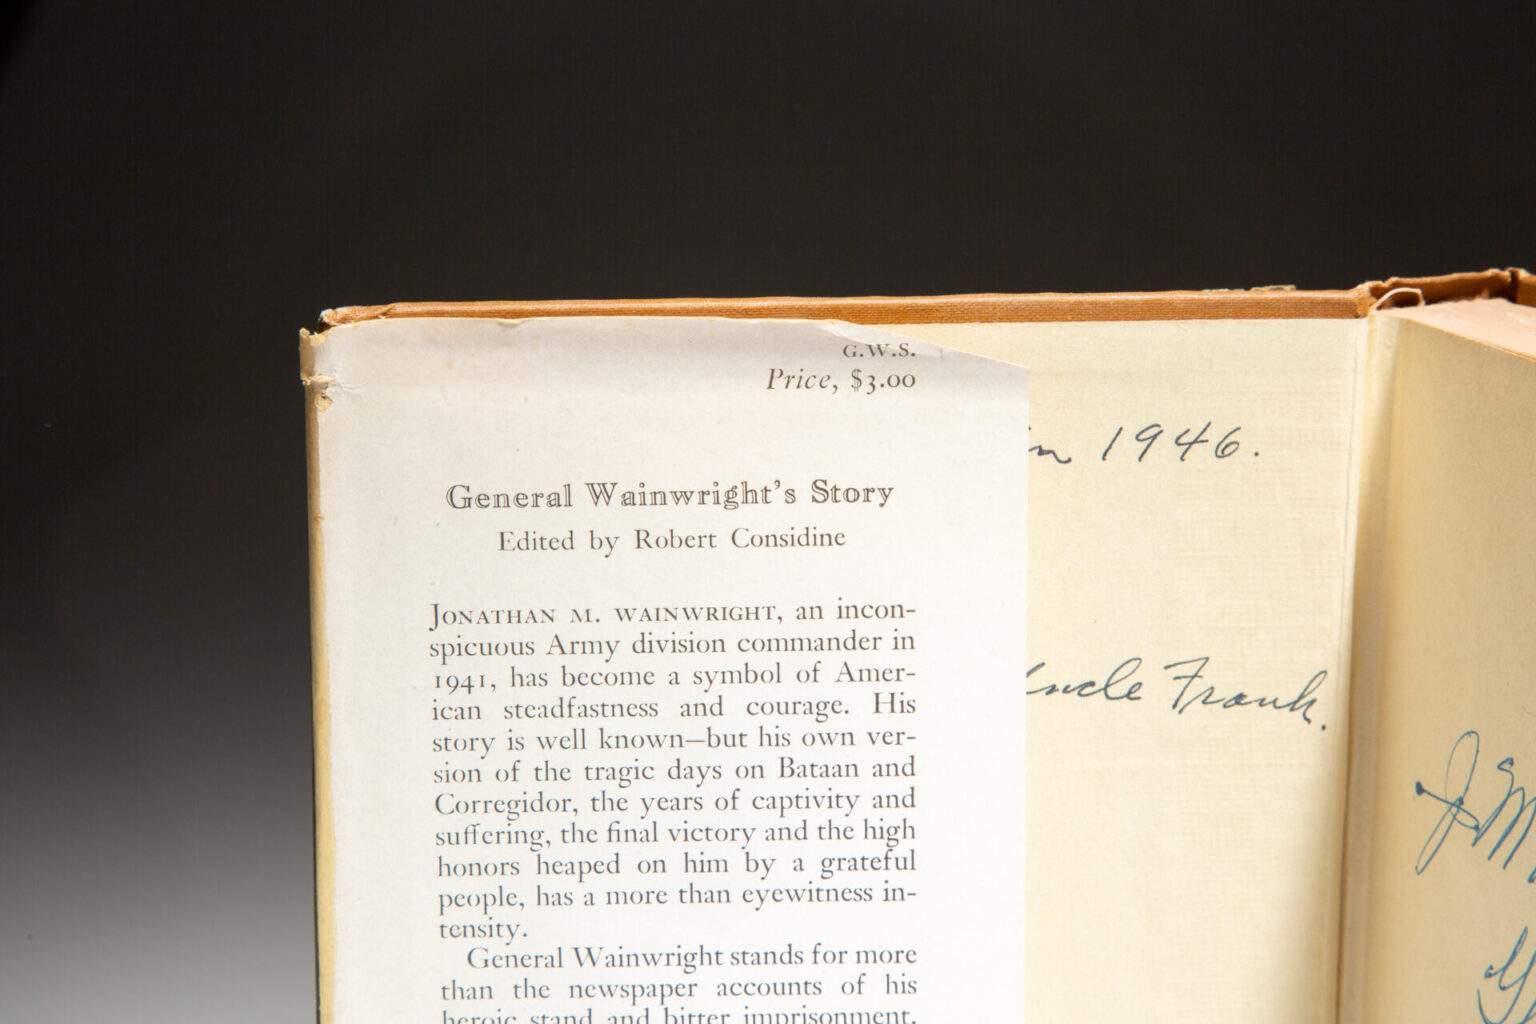 G.W.S.
Price, $3.00
General Wainwright's Story
Edited by Robert Considine
JONATHAN M. WAINWRIGHT, an incon-
spicuous Army division commander in
1941, has become a symbol of Amer-
ican steadfastness and courage. His
story is well known—but his own ver-
sion of the tragic days on Bataan and
Corregidor, the years of captivity and
suffering, the final victory and the high
honors heaped on him by a grateful
people, has a more than eyewitness in-
tensity.
General Wainwright stands for more
than the newspaper accounts of his
heroic stand and bitter imprisonment.
in 1946.
Uncle Frank.
J. M.